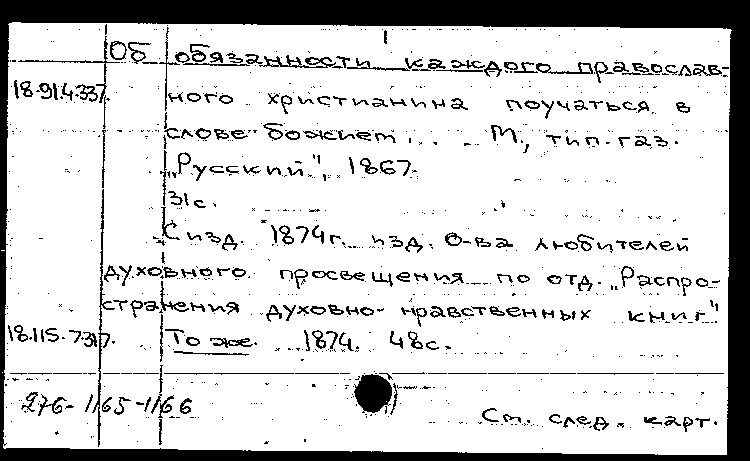 Об обязанности каждого православ-
18.914.337. ного христианина поучаться в
слове божием... М., тип. газ.
„Русский", 1867.
31с.
С изд. 1874г. изд. О-ва любителей
духовного просвещения по отд. „Распро-
странения духовно-нравственных книг"
18.115.7317. То же. 1874. 48с.
276-1165-1166
См. след. карт.